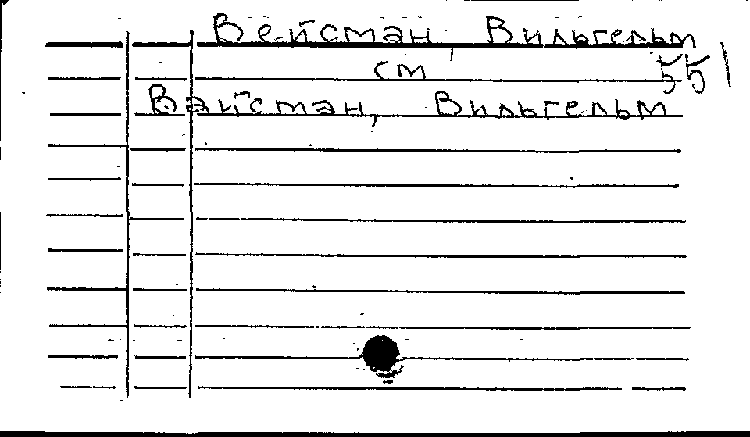 Вейсман, Вильгельм
см
551
Вайсман, Вильгельм